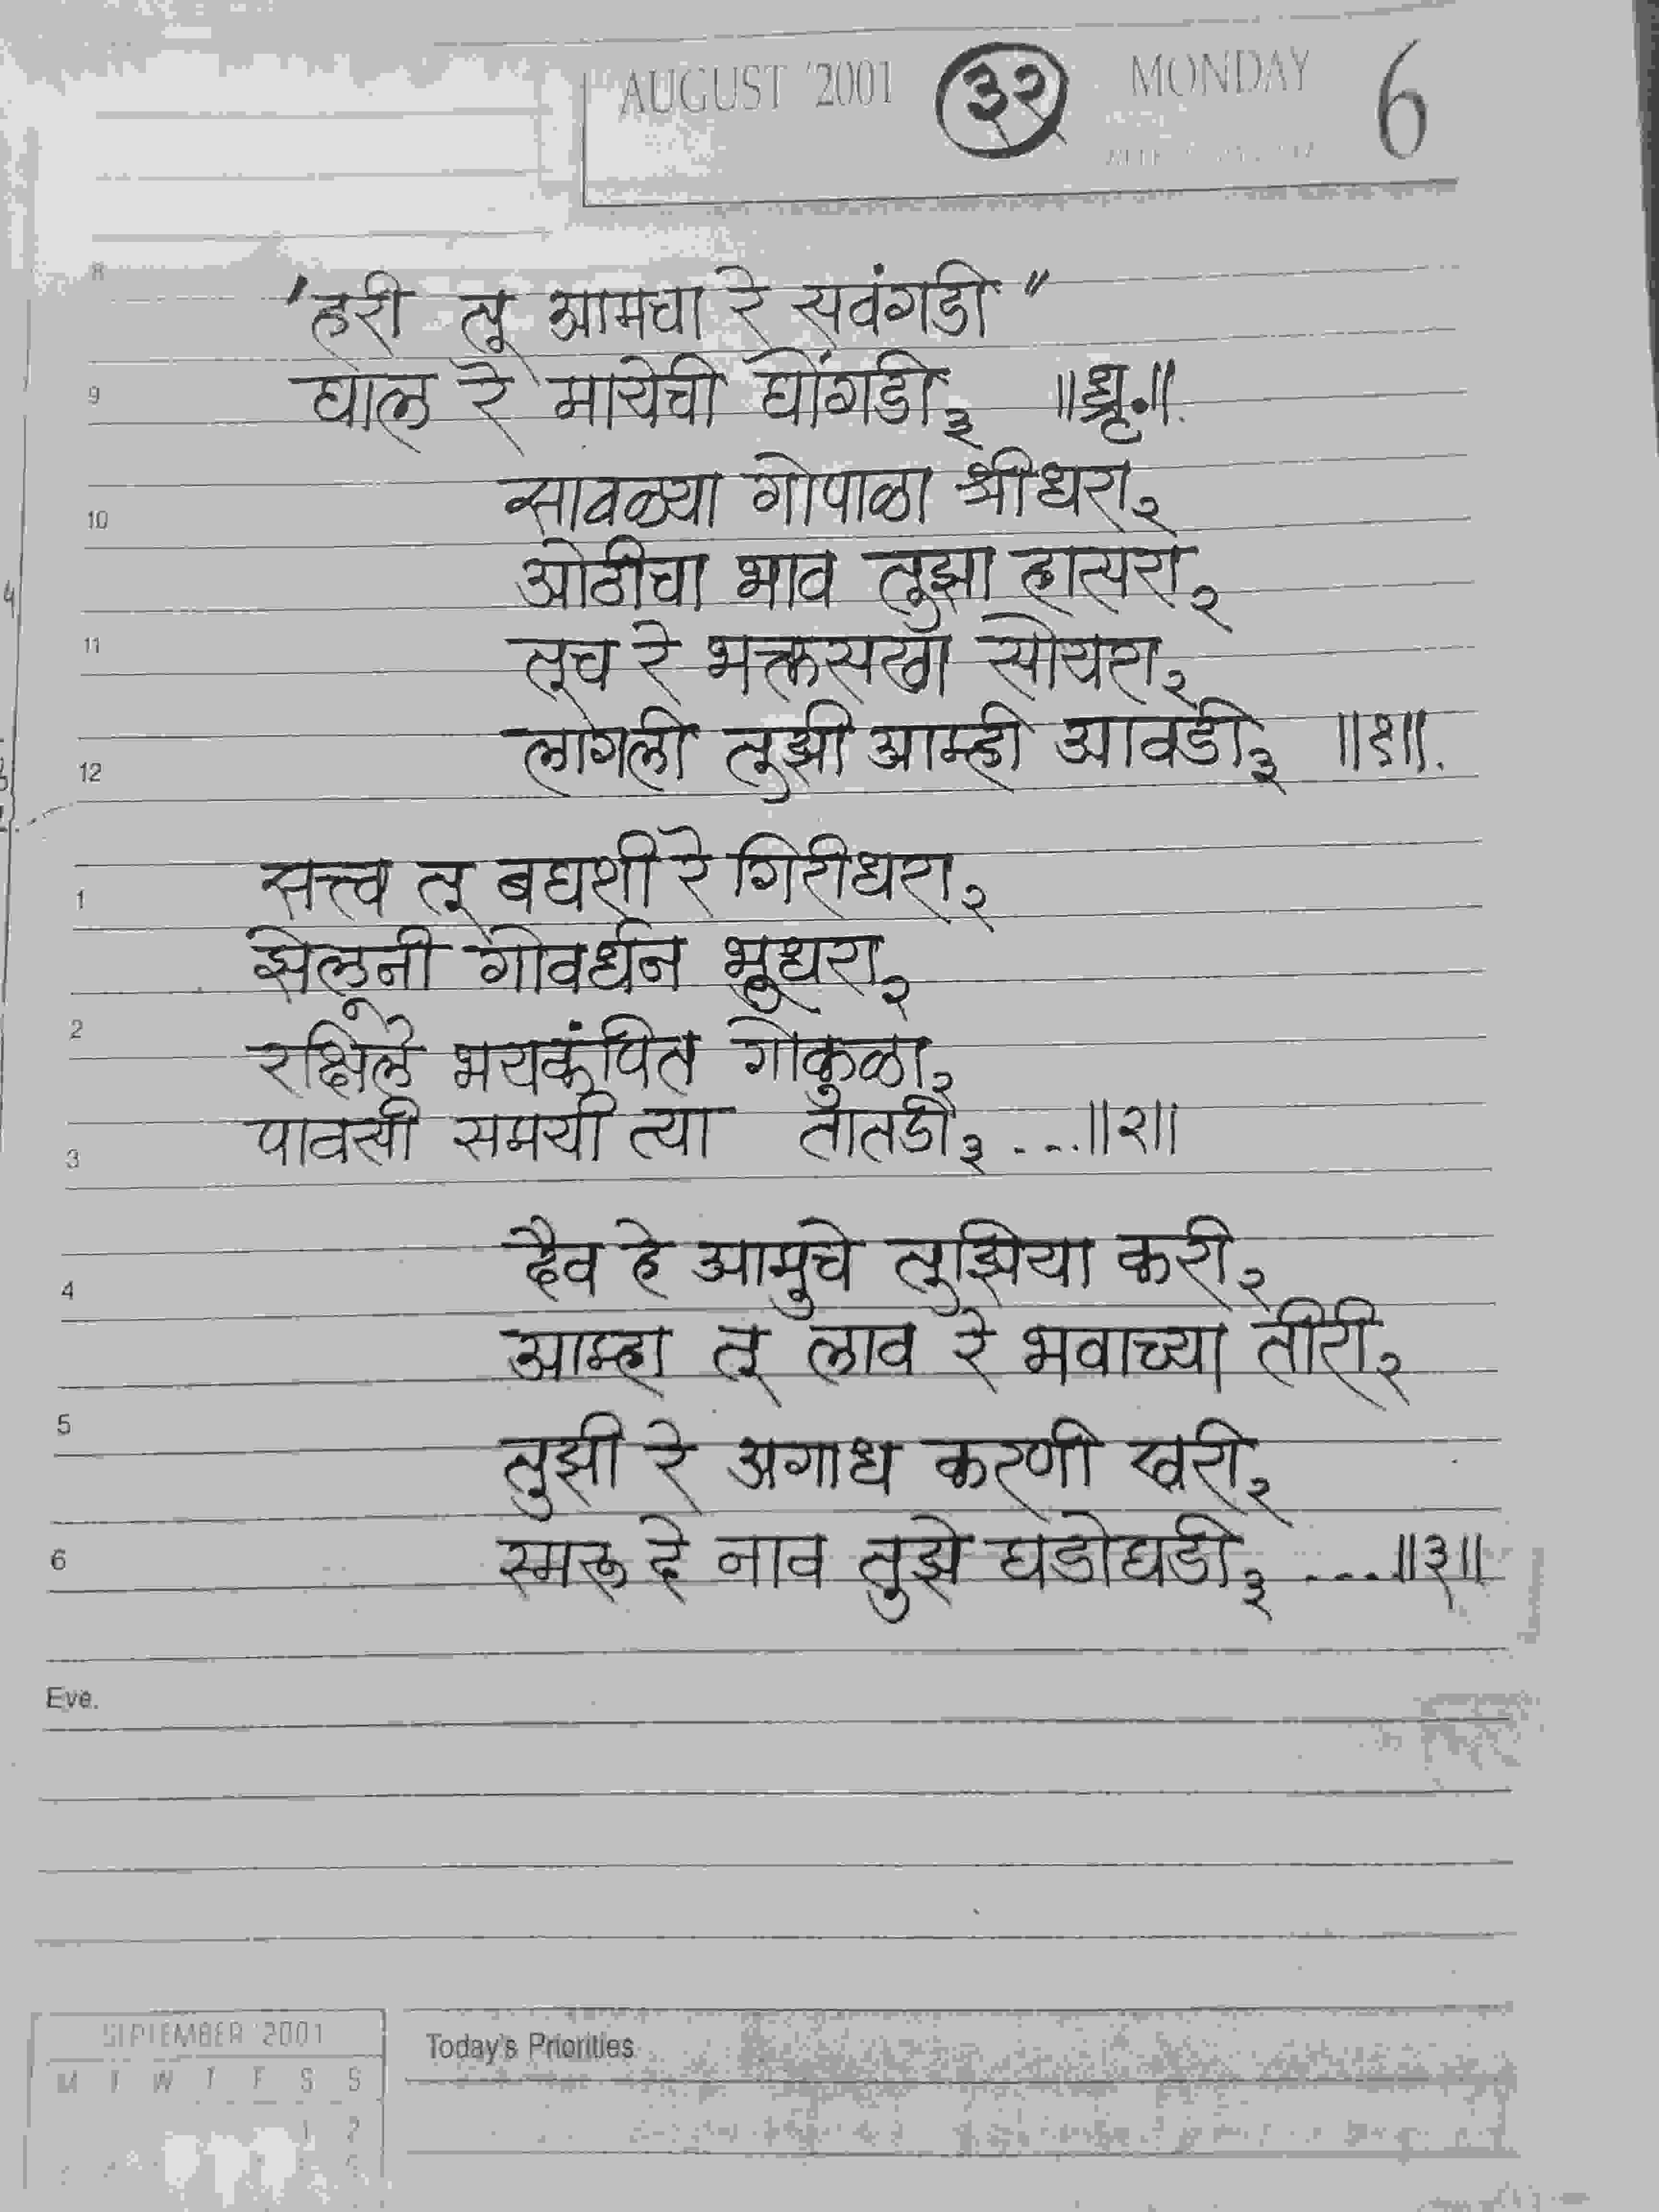 AUGUST '2001 ३२ MONDAY 6
8
'हरी तू आमचा रे सवंगडी"
9 घाल रे मायेची घोंगडी३ ॥धृ.॥.
10 सावळ्या गोपाळा श्रीधरा२
ओठीचा भाव तुझा हासरा२
11 तूच रे भक्तसखा सोयरा२
12 लागली तुझी आम्ही आवडी३ ॥१॥.
1 सत्त्व तू बघशी रे गिरीधरा२
झेलूनी गोवर्धन भूधरा२
2 रक्षिले भयकंपित गोकुळा२
3 पावसी समयी त्या तातडी३ ...॥२॥
4 दैव हे आमुचे तुझिया करी२
आम्हा तू लाव रे भवाच्या तीरी२
5 तुझी रे अगाध करणी खरी२
6 स्मरू दे नाव तुझे घडोघडी३ ....॥३॥
Eve.
SEPTEMBER 2001 Today's Priorities
M T W T F S S
1 2